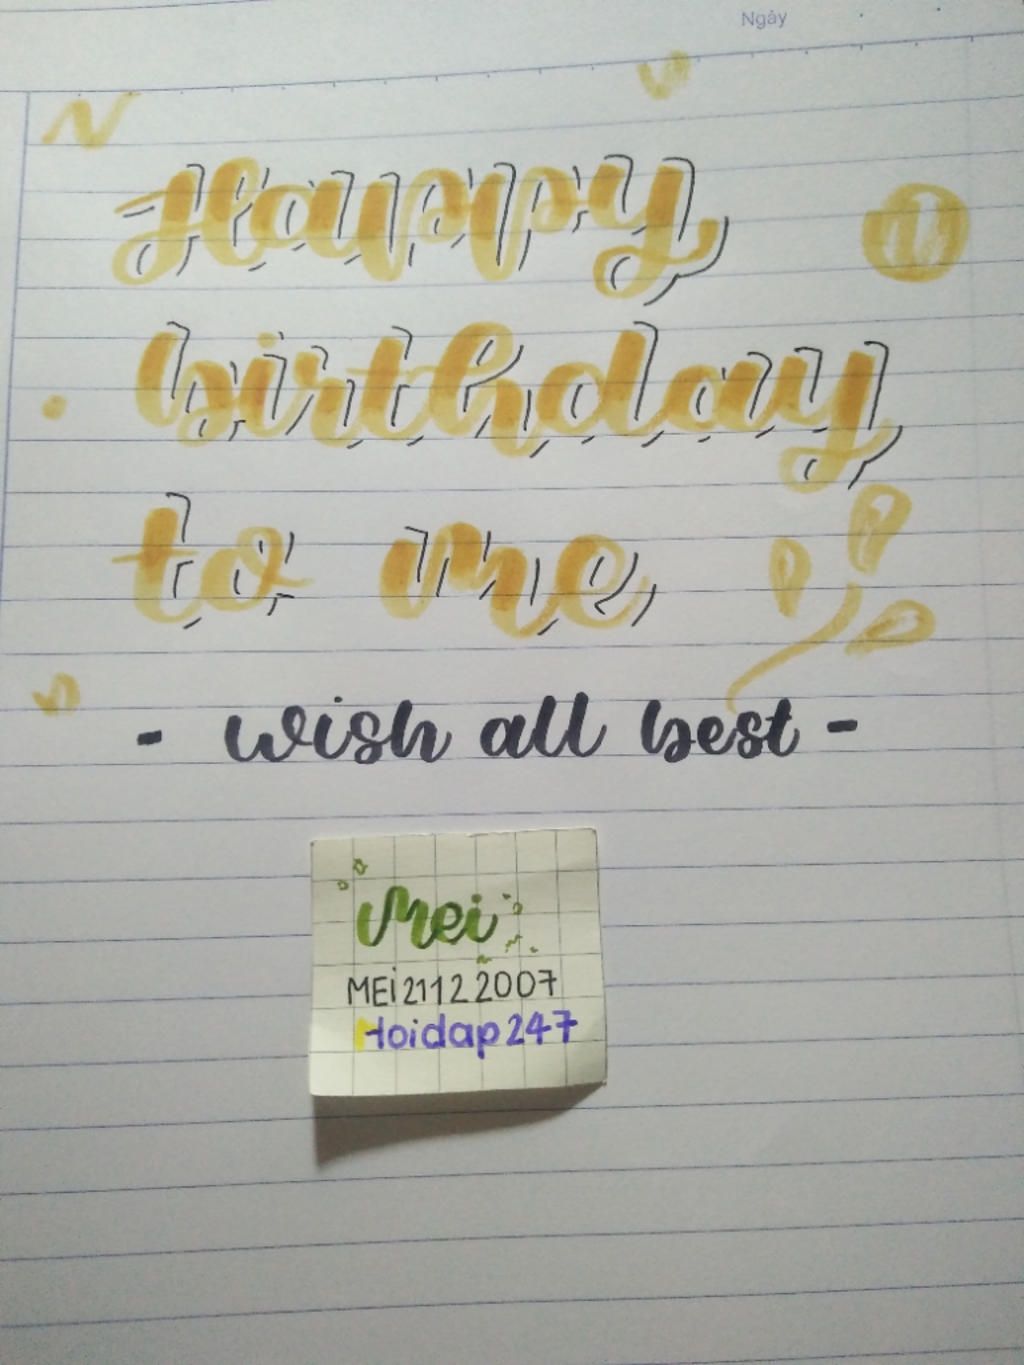 Ngày
Happy
birthday
to me
- wish all best -
Mei
MEi21122007
Hoidap247